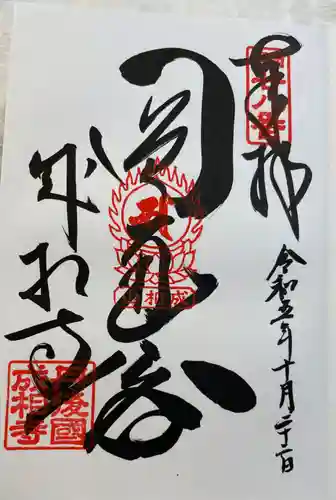 奉拝
令和五年十月二十一日
圓通閣
成相寺
丹後國
成相寺